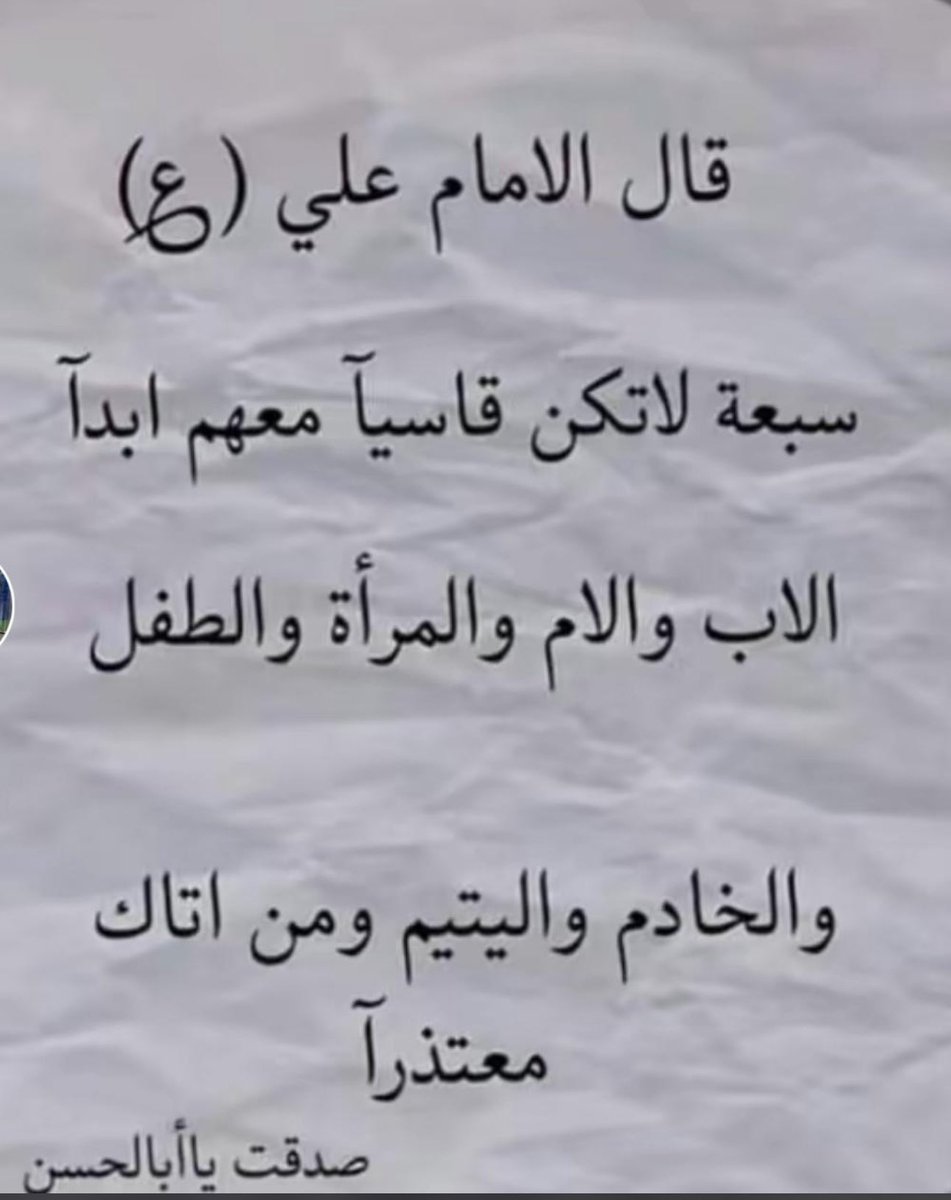 قال الامام علي (ع)
سبعة لاتكن قاسيآ معهم ابدآ
الاب والام والمرأة والطفل
والخادم واليتيم ومن اتاك
معتذرآ
صدقت ياأبالحسن